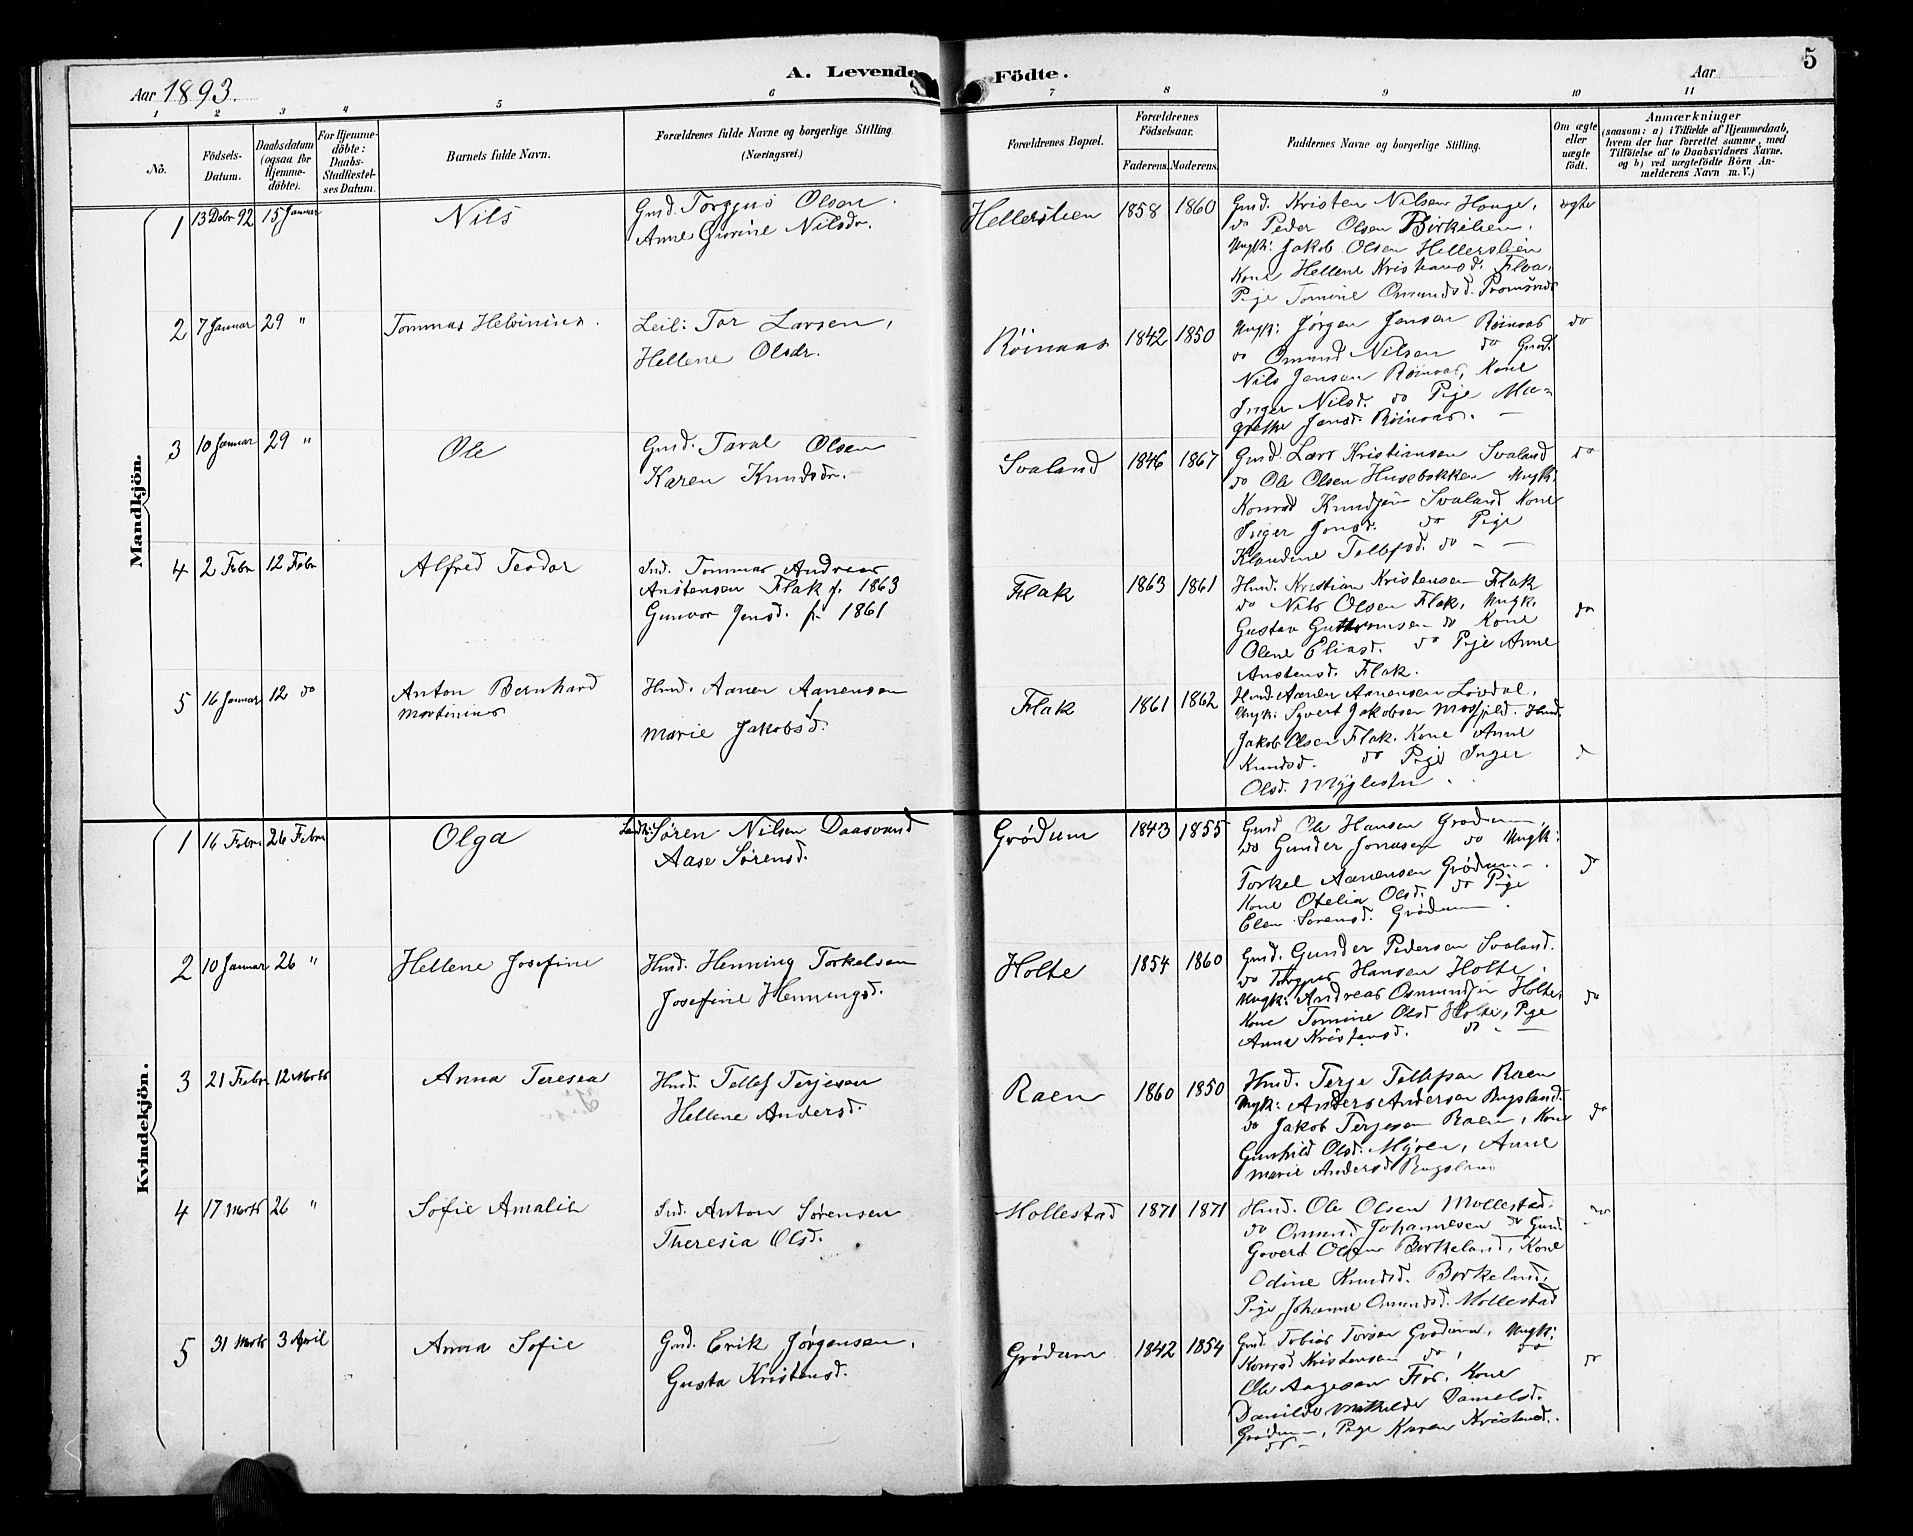 5
A. Levende Födte.
Aar 1893.
Aar
1 2 3 4 5 6 7 8 9 10 11
No.
Födsels-Datum.
Daabsdatum (ogsaa for Hjemme-döbte).
For Hjemme-döbte: Daabs-Stadfæstel-ses Datum.
Barnets fulde Navn.
Forældrenes fulde Navne og borgerlige Stilling.
(Næringsvei.)
Forældrenes Bopæl.
Forældrenes Födselsaar.
Faderens. Moderens.
Faddernes Navne og borgerlige Stilling.
Om ægte eller uægte födt.
Anmærkninger
(saasom: a) i Tilfælde af Hjemmedaab, hvem der har forrettet samme, med Tilföielse af to Daabsvidners Navne. og b) ved uægtefödte Börn An-melderens Navn m. V.)
Mandkjön.
1 13 Debr 92 15 Januar Nils
Gmd. Torgjus Olsen.
Anne Gurine Nilsdr.
Hellerslien 1858 1860
Gmd. Kristen Nilsen Hauge,
do Peder Olsen Birkelien.
Ungk: Jakob Olsen Hellerslien
Kone Hellene Kristiansd. Flaa,
Pige Tomine Omundsd.
ægte
2 7 Januar 29 " Tommas Helvinius.
Leil: Tor Larsen,
Hellene Olsdr.
Röinaas 1842 1850
Ungk: Jørgen Jensen Röinaas
do Omund Nilsen do Gmd.
Nils Jensen Röinaas, Kone
Inger Nilsd. do Pige Ma-
grethe Jensd. Röinaas. —
do
3 10 Januar 29 " Ole
Gmd. Taral Olsen
Karen Knudsdr.
Svaland 1846 1867
Gmd. Lars Kristiansen Svaland
do Ole Olsen Husebakken Ungk:
Konrad Knudsen Svaland Kone
Inger Jonsd. do Pige
Klaudine Tellefsd. do — —
do
4 2 Febr 12 Febr Alfred Teodor
Ind. Tommas Andreas
Austensen Flak f. 1863
Gunvor Jensd. f. 1861
Flak 1863 1861
Hmd. Kristian Kristensen Flak
do Nils Olsen Flak, Ungk.
Gustav Guttormsen do Kone
Olene Eliasd. do Pige Anne
Austensd. Flak.
do
5 16 Januar 12 do Anton Bernhard
Martinius
Hmd. Aanen Aanensen
Marie Jakobsd.
Flak 1861 1862
Hmd. Aanen Aanensen
Ungk: Syvert Jakobsen Mosfjeld. Hmd.
Jakob Olsen Flak. Kone Anne
Knudsd. do Pige Inger
Olsd.
d
Kvindekjön.
1 16 Febr 26 Febr Olga
Søren Nilsen Daasvand
Aase Sørensd.
Grødum 1843 1855
Gmd Ole Hansen Grødum,
do Gunder Jonasen do Ungk:
Torkel Aanensen Grødum — .
Kone Otelia Olsd. do Pige
Elen Sørensd. Grødum.
do
2 10 Januar 26 " Hellene Josefine
Hmd. Henning Torkelsen
Josefine Henningsd.
Holte 1854 1860
Gmd. Gunder Pedersen Svaland.
do Torgjus Hansen Holte.
Ungk: Andreas Osmundsen Holte,
Kone Tomine Olsd Holte, Pige
Anna Kristensd. do — —
do
3 21 Febr. 12 Marts Anna Teresea
Hmd. Tellef Terjesen
Hellene Andersd.
Raen 1860 1850
Hmd. Terje Tellefsen Raen
Ungk: Anders Andersen Rugsland.
do Jakob Terjesen Raen, Kone
Gunhild Olsd. Myren, Anne
Marie Andersd Rugsland
do
4 17 Marts 26 " Sofie Amalie
Ind. Anton Sørensen
Theresia Olsd.
Mollestad 1871 1871
Hmd. Ole Olsen Mollestad.
do Omund Johannesen do Gmd.
Govert Olsen Birkeland, Kone
Odine Knudsd. Birkeland,
Pige Johanne Omundsd. Mollestad
do
5 31 Marts 3 April Anna Sofie
Gmd. Erik Jørgensen.
Gusta Kristensd.
Grødum 1842 1854
Gmd. Tobias Torsen Grødum, Ungk:
Konrad Kristensen do, do
Ole Aagesen Flor. Kone
Danilde Mathilde Danielsd.
Grødum —, Pige Karen Kristensd.
do —
do